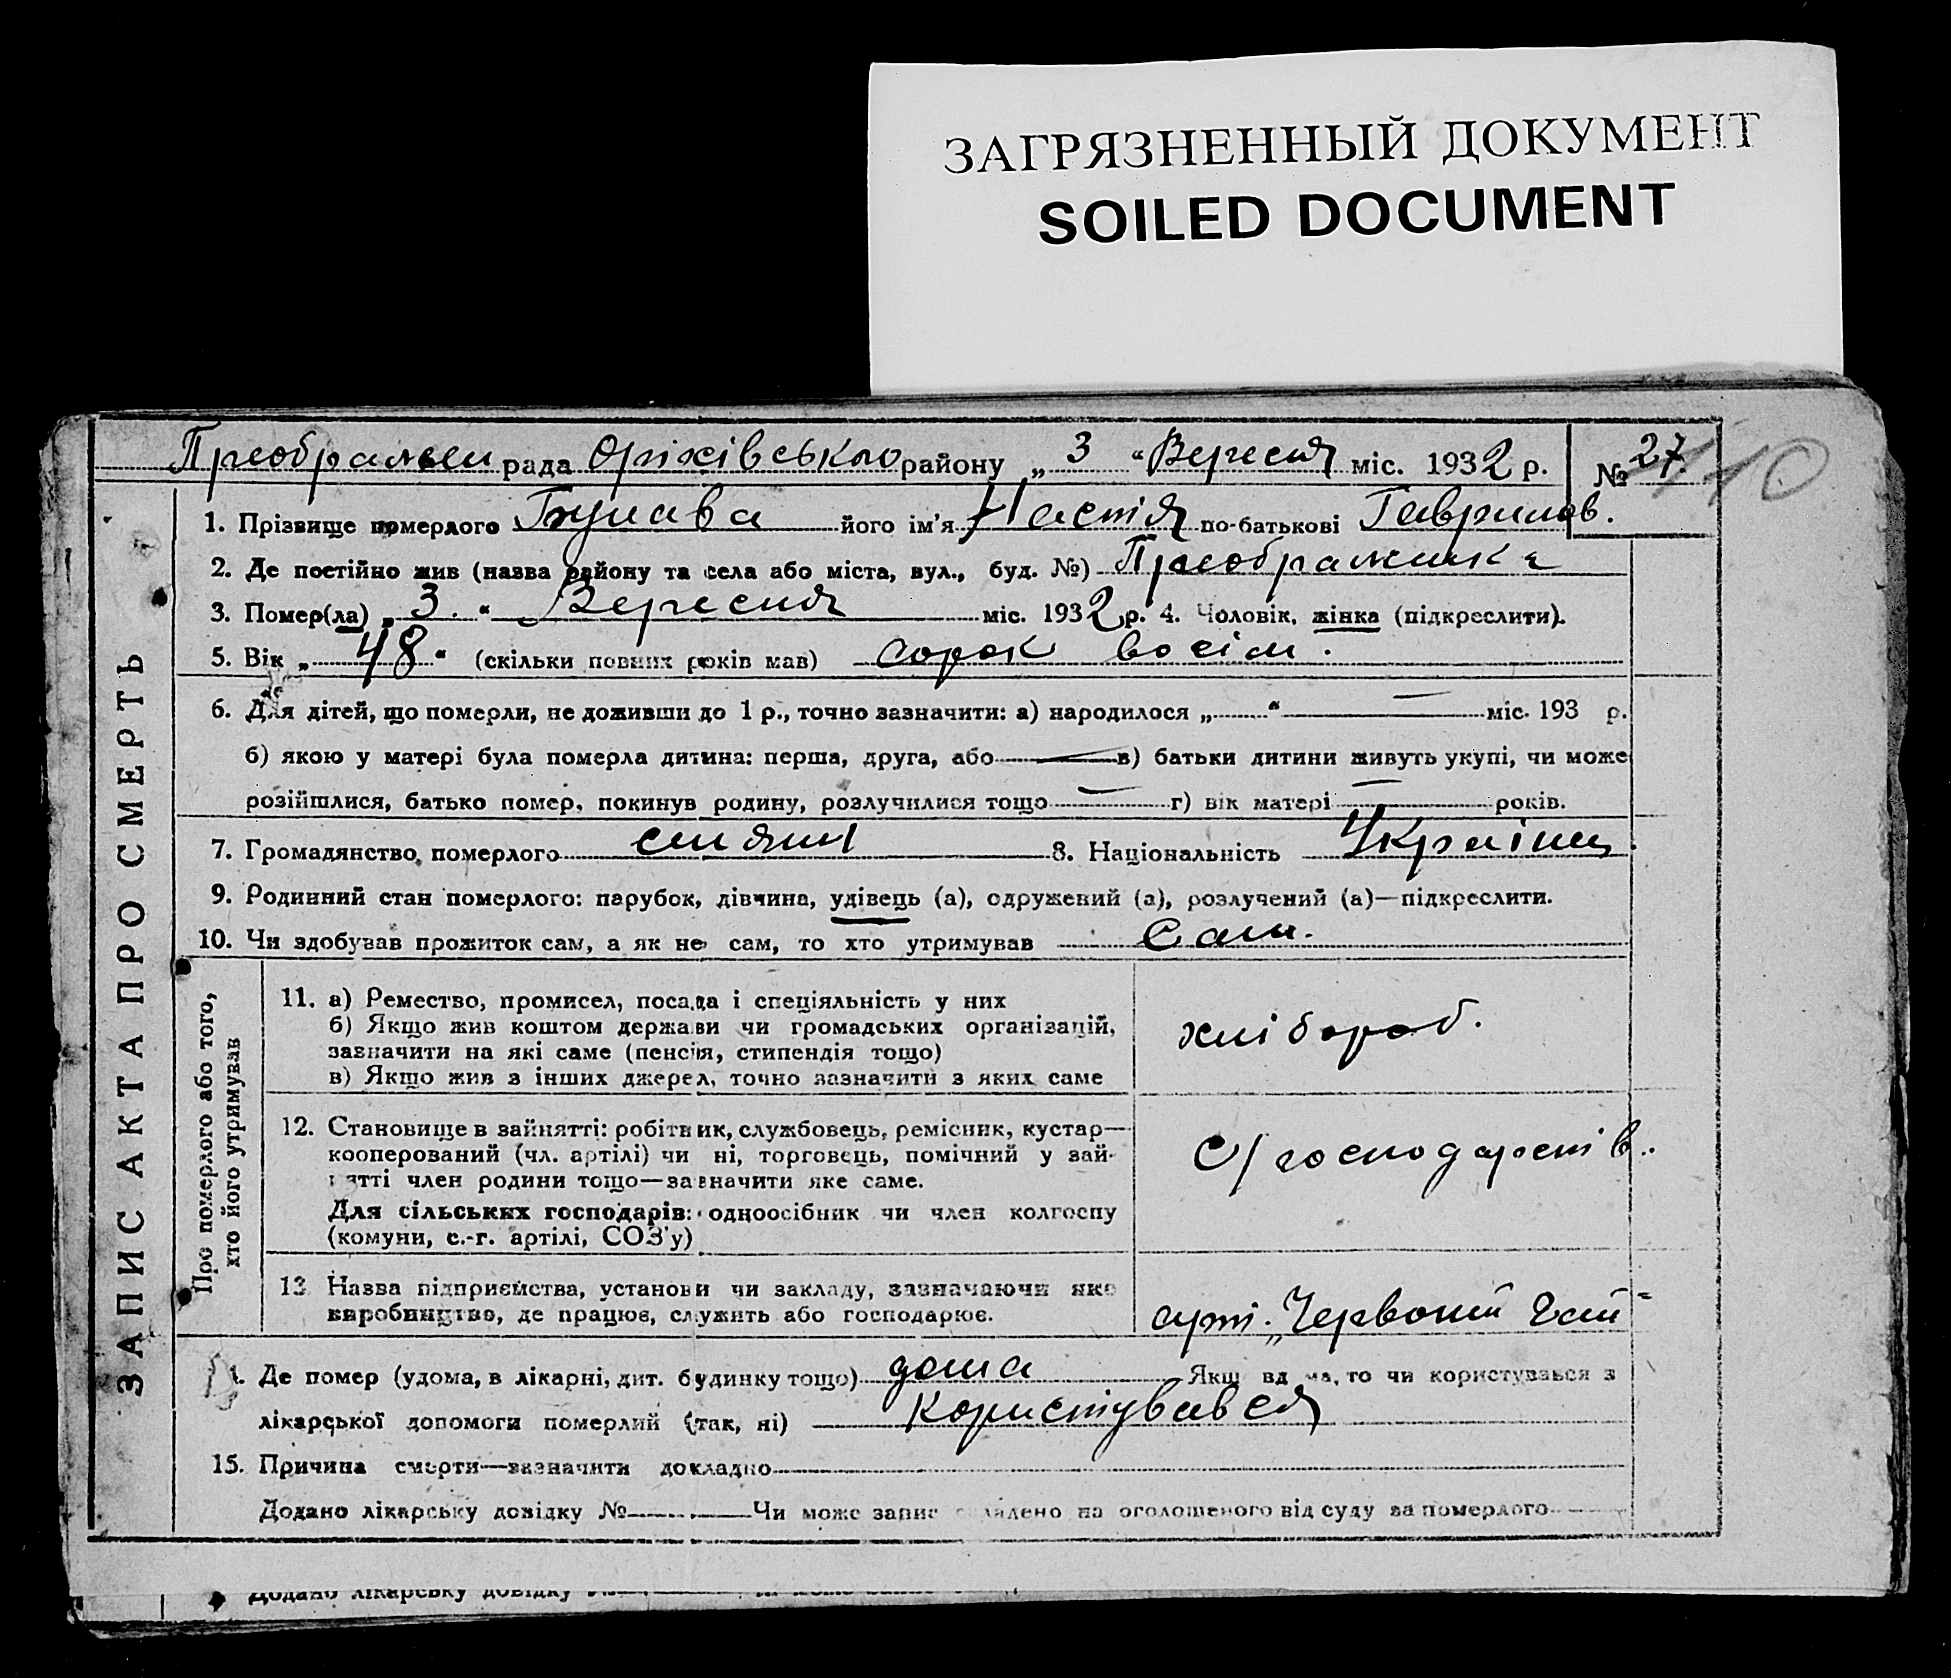 ЗАГРЯЗНЕННЫЙ ДОКУМЕНТ
SOILED DOCUMENT
рада Оріхівського району „ 3 “ Вересня міс. 1932 р. № 27. 110
ЗАПИС АКТА ПРО СМЕРТЬ
1. Прізвище померлого Булава його ім'я Настія по-батькові Гаврилов.
2. Де постійно жив (назва району та села або міста, вул., буд. №) Преображенка
3. Помер(ла) „ 3. “ Вересня міс. 1932 р. 4. Чоловік, жінка (підкреслити).
5. Вік „ 48 “ (скільки повних років мав) сорок восім.
6. Для дітей, що померли, не доживши до 1 р., точно зазначити: а) народилося „ “ — міс. 193 р.
б) якою у матері була померла дитина: перша, друга, або — в) батьки дитини живуть укупі, чи може
розійшлися, батько помер, покинув родину, розлучилися тощо — г) вік матері — років.
7. Громадянство померлого 8. Національність Україн.
9. Родинний стан померлого: парубок, дівчина, удівець (а), одружений (а), розлучений (а)—підкреслити.
10. Чи здобував прожиток сам, а як не сам, то хто утримував Сам.
Про померлого або того, хто його утримував
11. а) Ремество, промисел, посада і спеціяльність у них
б) Якщо жив коштом держави чи громадських організацій,
зазначити на які саме (пенсія, стипендія тощо)
в) Якщо жив з інших джерел, точно зазначити з яких саме
хлібороб.
12. Становище в зайнятті: робітник, службовець, ремісник, кустар—
кооперований (чл. артілі) чи ні, торговець, помічний у зай-
нятті член родини тощо—зазначити яке саме.
Для сільських господарів: одноосібник чи член колгоспу
(комуни, с.-г. артілі, СОЗ'у)
С/господарств..
13 Назва підприємства, установи чи закладу, зазначаючи яке
виробництво, де працює, служить або господарює.
арт. „Червоний Гай“
14. Де помер (удома, в лікарні, дит. будинку тощо) дома Якщо вдома, то чи користувався з
лікарської допомоги померлий (так, ні) Користувався
15. Причина смерти—зазначити докладно
Додано лікарську довідку № Чи може запис складено на оголошеного від суду за померлого
Додано лікарську довідку